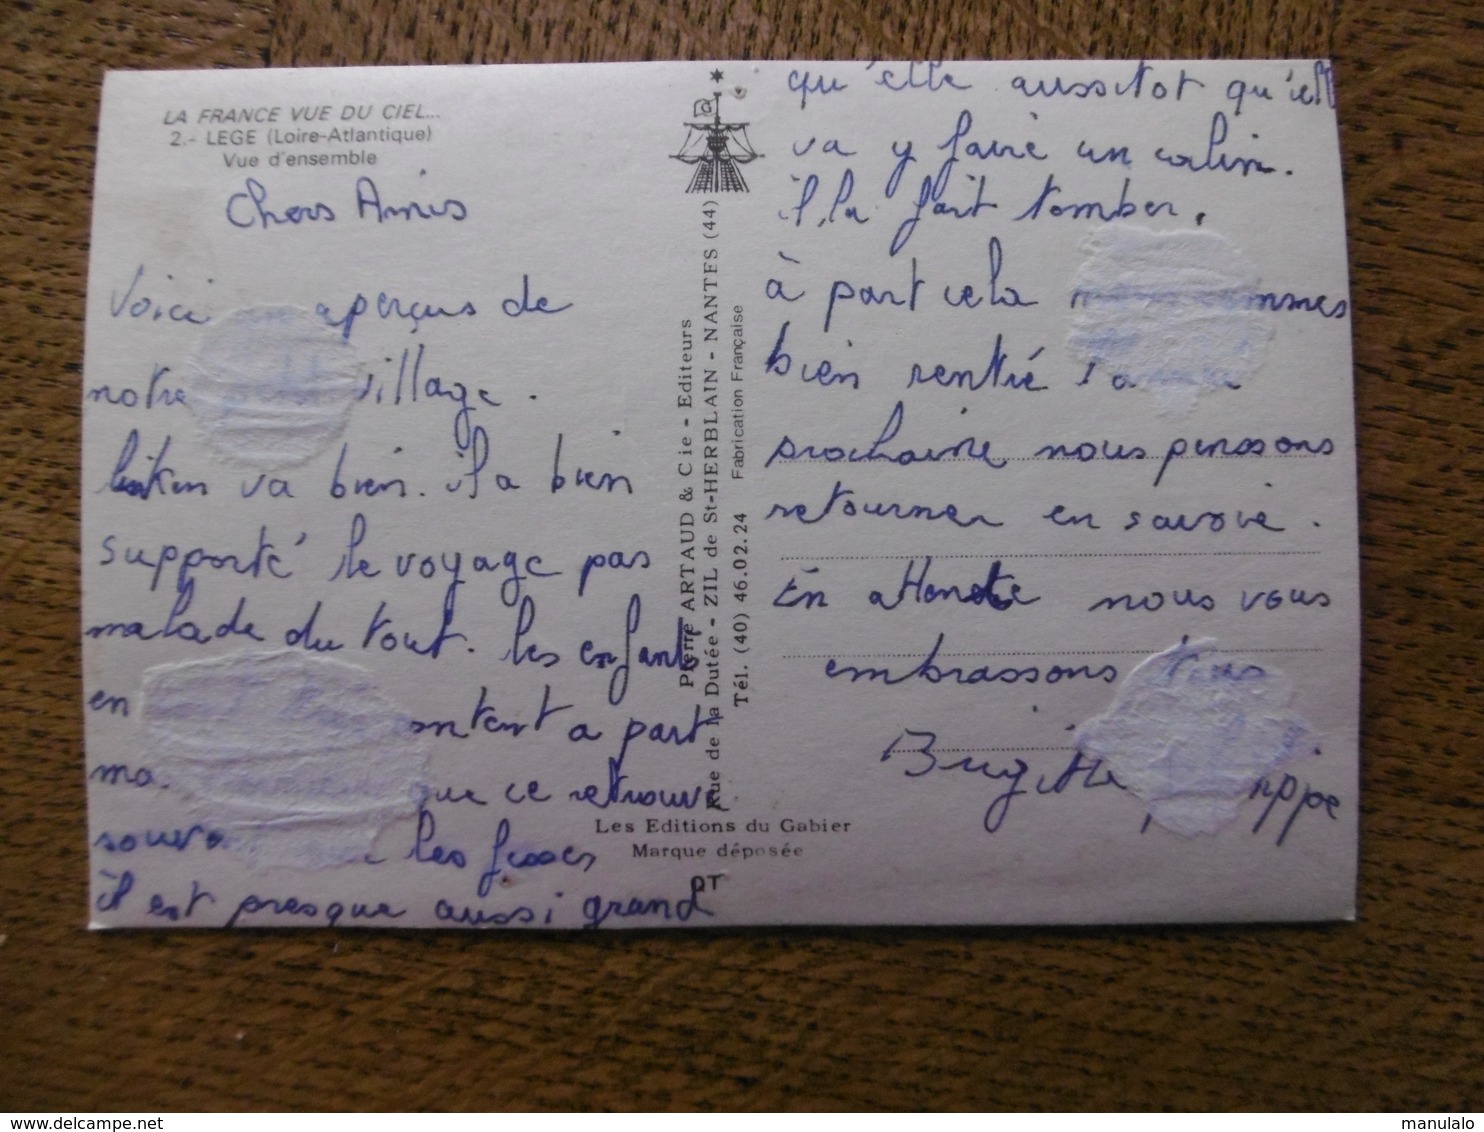 LA FRANCE VUE DU CIEL...
2.- LEGE (Loire-Atlantique)
Vue d'ensemble
Chers Amis
Voici aperçus de
notre village.
va bien. il a bien
supporté le voyage pas
malade du tout. les enfants
en a part
que ce retrouve
les fesses
il est presque aussi grand
Pierre ARTAUD & Cie - Editeurs
Rue de la Dutée - ZIL de St-HERBLAIN - NANTES (44)
Tél. (40) 46.02.24 Fabrication Française
Les Editions du Gabier
Marque déposée
qu'elle aussitot qu'elle
va y faire un calin.
il la fait tomber.
à part cela
bien rentré
prochaine nous pensons
retourner en savoie.
En attendant nous vous
embrassons tous
Brigitte
manulalo